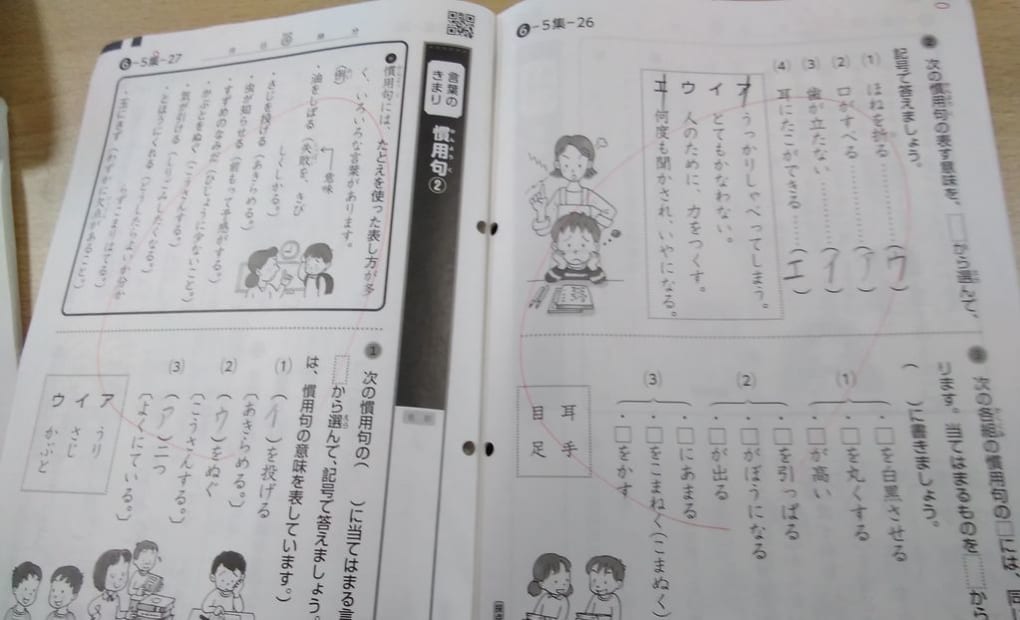 6-5集-26
2 次の慣用句の表す意味を、□から選んで、
記号で答えましょう。
(1) ほねを折る………(ウ)
(2) 口がすべる………(ア)
(3) 歯が立たない……(イ)
(4) 耳にたこができる……(エ)
ア うっかりしゃべってしまう。
イ とてもかなわない。
ウ 人のために、力をつくす。
エ 何度も聞かされ、いやになる。
次の各組の慣用句の□には、同
ります。当てはまるものを□から
( )に書きましょう。
(1)
・□を白黒させる
・□を丸くする
・□が高い
(2)
・□を引っぱる
・□がぼうになる
・□が出る
(3)
・□にあまる
・□をこまねく(こまぬく)
・□をかす
耳 手
目 足
6-5集-27
言葉の
きまり
慣用句②
慣用句には、たとえを使った表し方が多
く、いろいろな言葉があります。
例
意味
・油をしぼる(失敗を、きび
しくしかる。)
・さじを投げる(あきらめる。)
・虫が知らせる(前もって予感がする。)
・すずめのなみだ(
・かぶとをぬぐ(こうさんする。)
・玉にきず(わずかに欠点があること。)
1 次の慣用句の( )に当てはまる言
□から選んで、記号で答えましょう。
は、慣用句の意味を表しています。)
(1) (イ)を投げる
(あきらめる。)
(2) (ウ)をぬぐ
(こうさんする。)
(3) (ア)二つ
(よくにている。)
ア うり
イ さじ
ウ かぶと